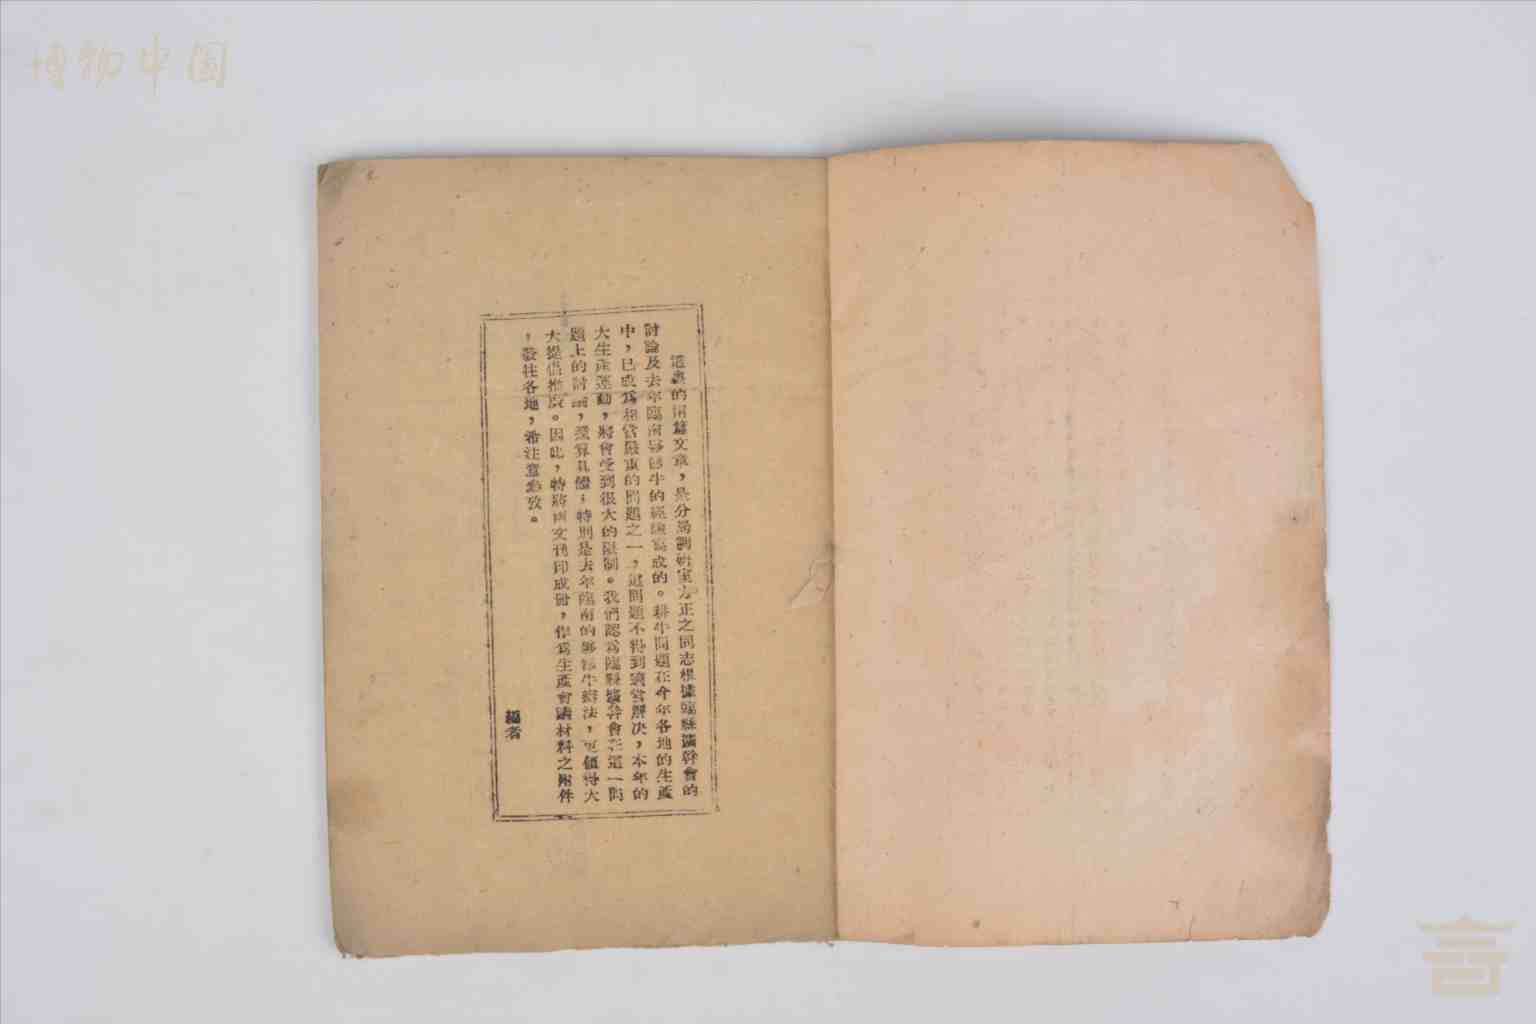 博物中国
這裏的兩篇文章，是分局調研室方正之同志根據臨縣擴幹會的
討論及去年臨南夥牛的經驗寫成的。耕牛問題在今年各地的生產
中，已成爲相當嚴重的問題之一，這問題不得到適當解决，本年的
大生產運動，將會受到很大的限制。我們認爲臨縣擴幹會在這一問
題上的討論，還算具體；特别是去年臨南的夥牛辦法，更值得大
大提倡推廣。因此，特將兩文刊印成册，作爲生產會議材料之附件
，發往各地，希注意參攷。
編者